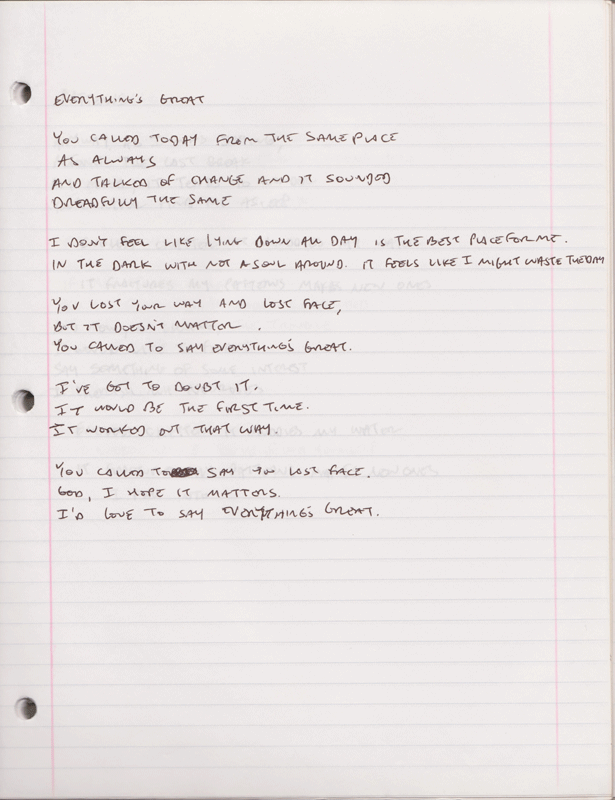 EVERYTHING'S GREAT
YOU CALLED TODAY FROM THE SAME PLACE
AS ALWAYS
AND TALKED OF CHANGE AND IT SOUNDED
DREADFULLY THE SAME
I DON'T FEEL LIKE LYING DOWN ALL DAY IS THE BEST PLACE FOR ME.
IN THE DARK WITH NOT A SOUL AROUND. IT FEELS LIKE I MIGHT WASTE THE DAY
YOU LOST YOUR WAY AND LOST FACE,
BUT IT DOESN'T MATTER.
YOU CALLED TO SAY EVERYTHING'S GREAT.
I'VE GOT TO DOUBT IT.
IT WOULD BE THE FIRST TIME.
IT WORKED OUT THAT WAY.
YOU CALLED TO SAY YOU LOST FACE.
GOD, I HOPE IT MATTERS.
I'D LOVE TO SAY EVERYTHING'S GREAT.